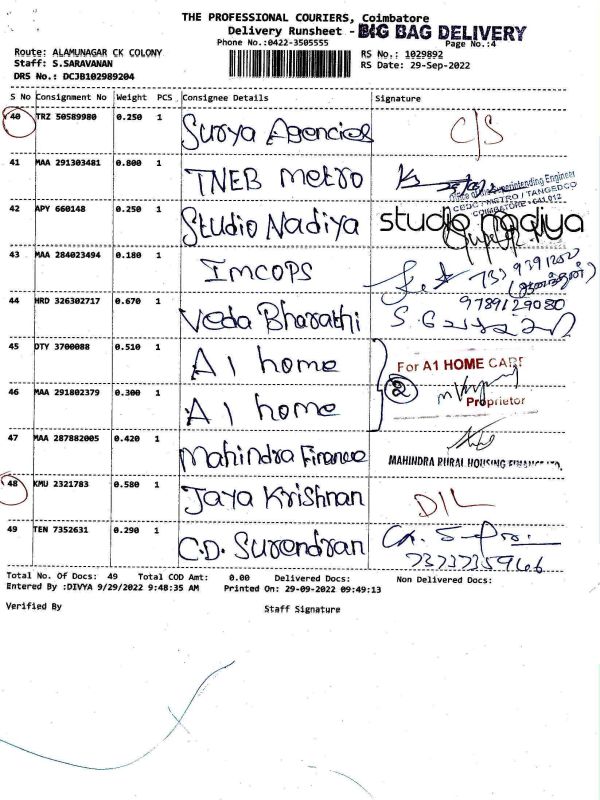 THE PROFESSIONAL COURIERS, Coimbatore
Delivery Runsheet - BIG BAG DELIVERY
Phone No.:0422-3505555
Page No.:4
Route: ALAMUNAGAR CK COLONY
RS No.: 1029892
Staff: S.SARAVANAN
RS Date: 29-Sep-2022
DRS No.: DCJB102989204
S No Consignment No Weight PCS Consignee Details Signature
40 TRZ 50589980 0.250 1 Surya Agencies C/S
41 MAA 291303481 0.800 1 TNEB metro
Office of the Superintending Engineer
CEDC / METRO / TANGEDCO
COIMBATORE - 641 012
42 APY 660148 0.250 1 Studio Nadiya studio nadiya
43 MAA 284023494 0.180 1 IMCOPS 7339391202
44 HRD 326302717 0.670 1 Veda Bharathi 9789129080
45 DTY 3700088 0.510 1 A1 home For A1 HOME CARE
46 MAA 291802379 0.300 1 A1 home 2 Proprietor
47 MAA 287882005 0.420 1 Mahindra Finance MAHINDRA RURAL HOUSING FINANCE LTD.
48 KMU 2321783 0.580 1 Jaya Krishnan D/L
49 TEN 7352631 0.290 1 C.D. Surendran
7373735966
Total No. Of Docs: 49 Total COD Amt: 0.00 Delivered Docs: Non Delivered Docs:
Entered By :DIVYA 9/29/2022 9:48:35 AM Printed On: 29-09-2022 09:49:13
Verified By Staff Signature